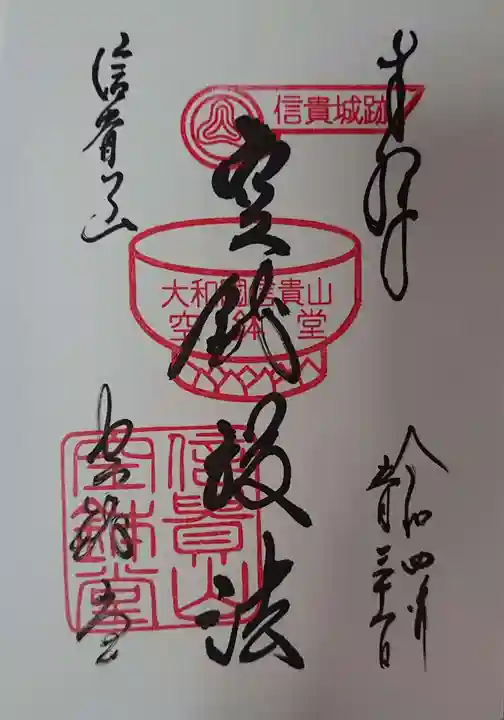 奉拝
令和四年
信貴城跡
空鉢護法
大和國信貴山
空鉢堂
信貴山
空鉢堂
信貴山
空鉢堂